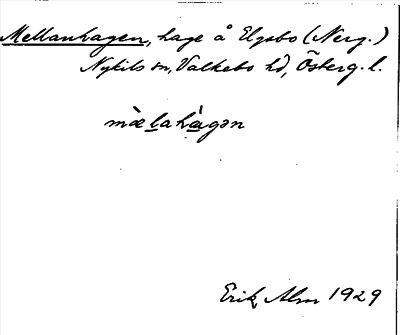 Mellanhagen, hage å Elgsbo (Nerg.)
Nykils sn, Valkebo hd, Österg. l.
mæ̀lahàgən
Erik Alm 1929